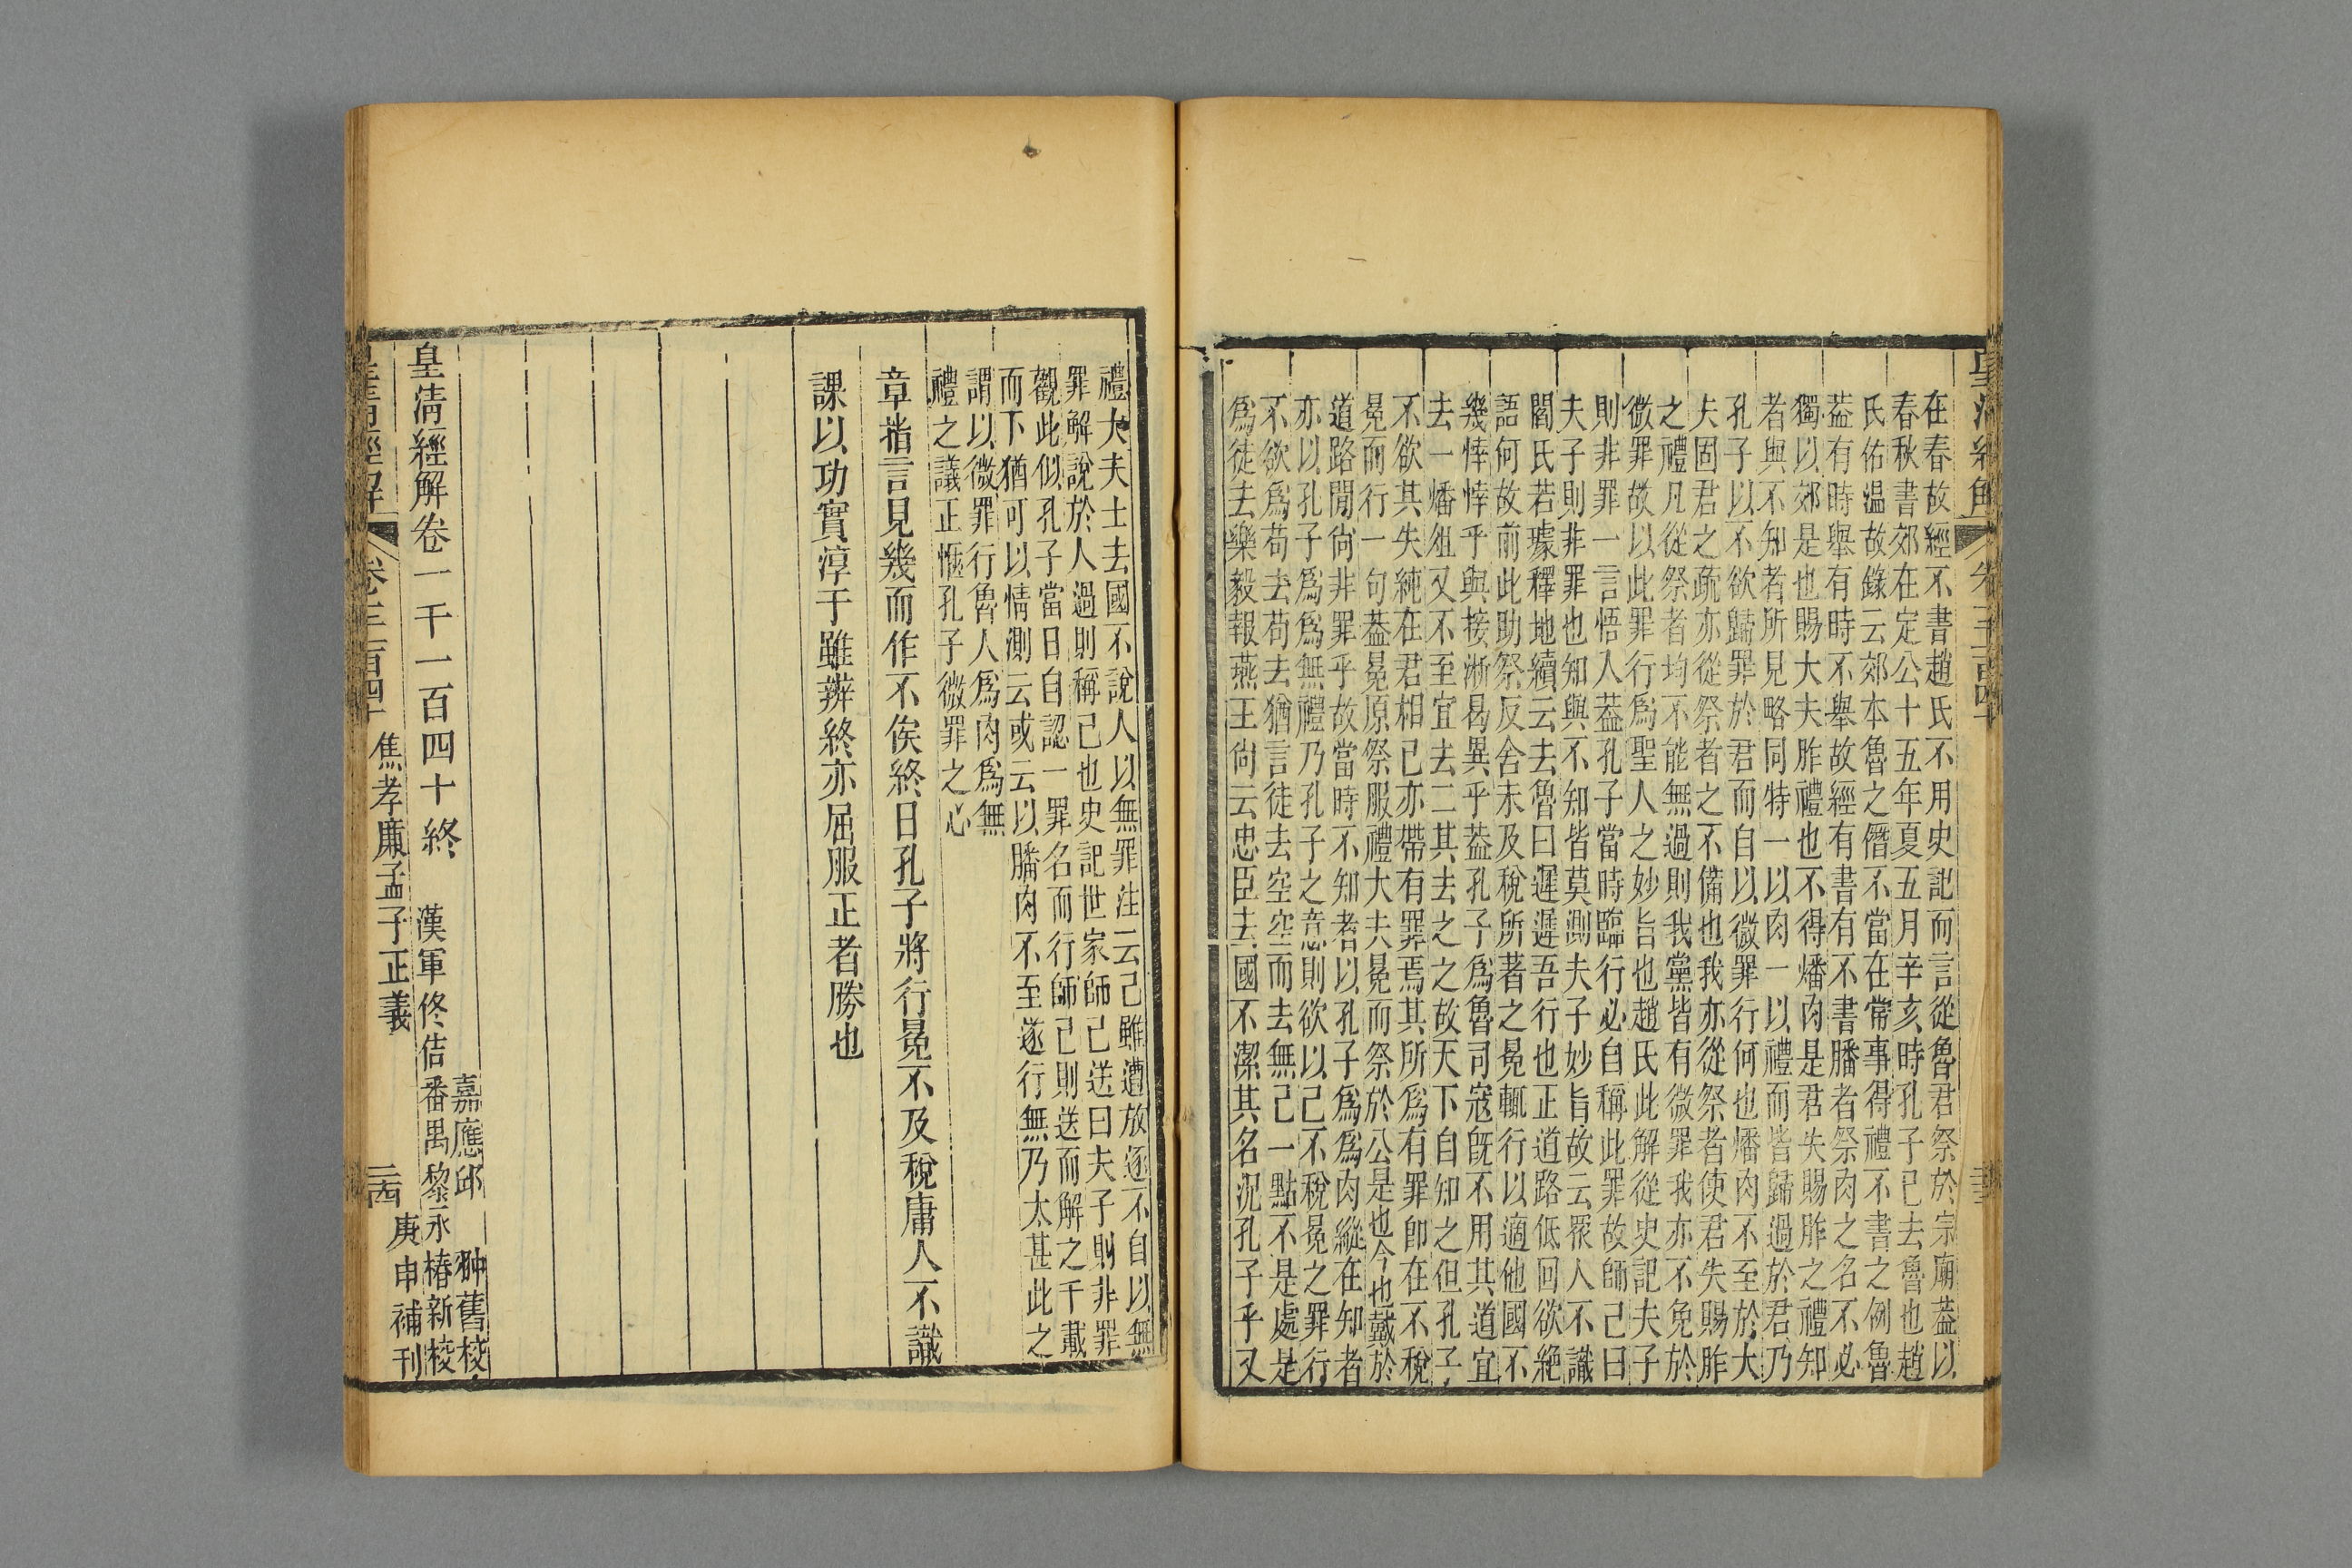 在春故經不書趙氏不用史記而言從魯君祭於宗廟葢以
春秋書郊在定公十五年夏五月辛亥時孔子已去魯也趙
氏佑温故錄云郊本魯之僭不當在常事得禮不書之例魯
葢有時舉有時不舉故經有書有不書膰者祭肉之名不必
獨以郊是也賜大夫胙禮也不得燔肉是君失賜胙之禮知
者與不知者所見略同特一以肉一以禮而皆歸過於君乃
孔子以不欲歸罪於君而自以微罪行何也燔肉不至於大
夫固君之疏亦從祭者之不備也我亦從祭者使君失賜胙
之禮凡從祭者均不能無過則我黨皆有微罪我亦不免於
微罪故以此罪行爲聖人之妙旨也趙氏此解從史記夫子
則非罪一言悟入葢孔子當時臨行必自稱此罪故師己曰
夫子則非罪也知與不知皆莫測夫子妙旨故云眾人不識
閻氏若璩釋地續云去魯曰遲遲吾行也正道路低回欲絶
語何故前此助祭反舍未及稅所著之冕輒行以適他國不
幾悻悻乎與接淅曷異乎葢孔子爲魯司寇旣不用其道宜
去一燔俎又不至宜去二其去之之故天下自知之但孔子
不欲其失純在君相已亦帶有罪焉其所爲有罪卽在不稅
冕而行一句葢冕原祭服禮大夫冕而祭於公是也今也戴於
道路閒尙非罪乎故當時不知者以孔子爲爲肉縱在知者
亦以孔子爲爲無禮乃孔子之意則欲以己不稅冕之罪行
不欲爲苟去苟去猶言徒去空空而去無己一點不是處是
爲徒去樂毅報燕王尙云忠臣去國不潔其名況孔子乎又
禮大夫士去國不說人以無罪注云己雖遭放逐不自以無
罪解說於人過則稱己也史記世家師己送曰夫子則非罪
觀此似孔子當日自認一罪名而行師己則送而解之千載
而下猶可以情測云或云以膰肉不至遂行無乃太甚此之
謂以微罪行魯人爲肉爲無
禮之議正愜孔子微罪之心
章指言見幾而作不俟終日孔子將行冕不及稅庸人不識
課以功實淳于雖辨終亦屈服正者勝也
嘉應邱翀舊校
皇淸經解卷一千一百四十終 漢軍佟佶番禺黎永椿新校
焦孝廉孟子正義 庚申補刊